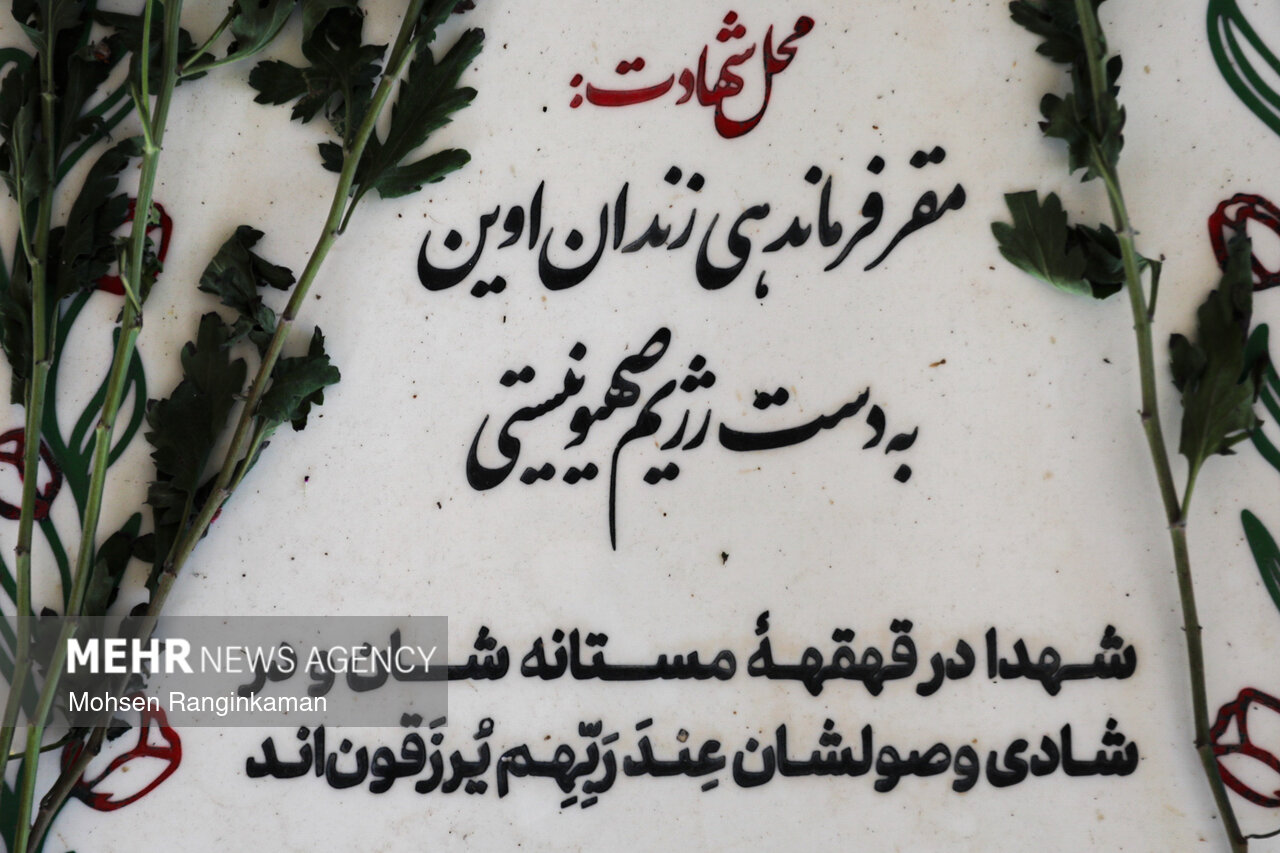 محل شهادت:
مقر فرماندهی زندان اوین
به دست رژیم صهیونیستی
شهدا در قهقههٔ مستانه شان و در
شادی وصولشان عِندَ رَبِّهِم یُرزَقون‌اند
MEHR NEWS AGENCY
Mohsen Ranginkaman